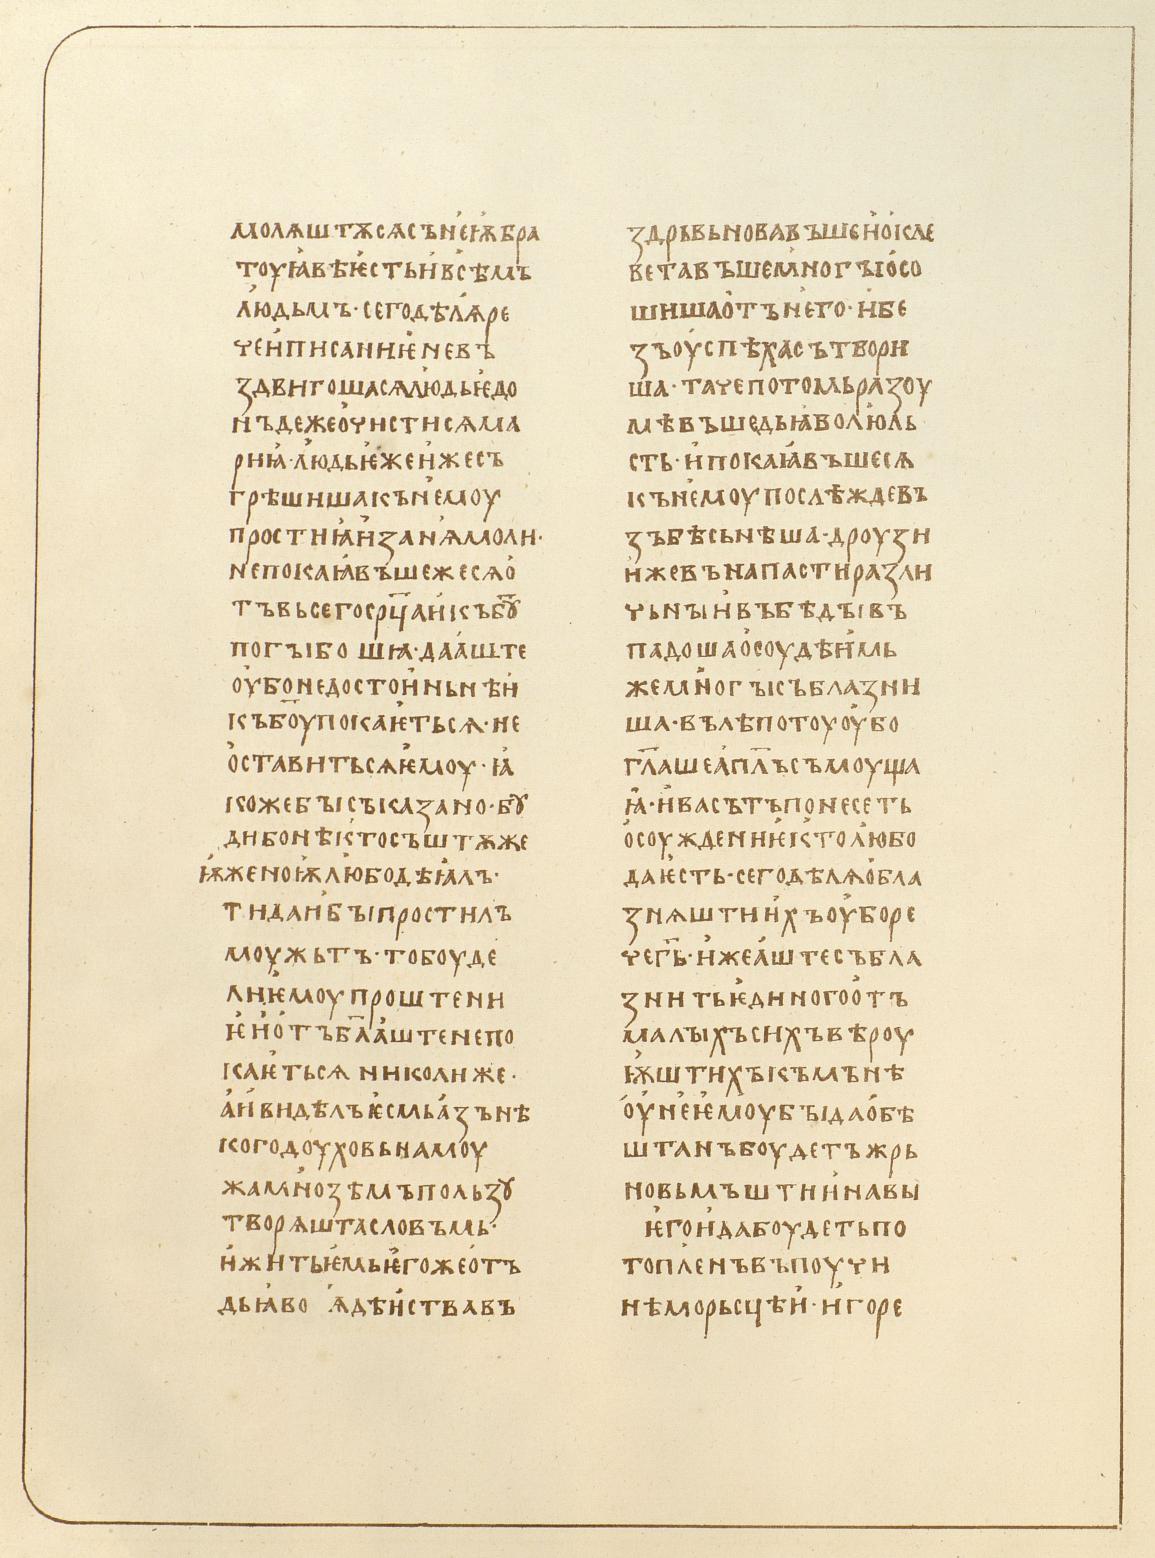 молѧштѫсѧсънеѭбра
тоуꙗвѣѥстьивсѣмъ
людьмъ·сегодѣлѧре
чеиписаниѥневъ
здвигошасѧлюдьѥдо
ньдежеочистисѧма
риꙗ·людьѥжеижесъ
грѣшишакънемоу
простиꙗизанѧмоли·
непокаꙗвъшежесѧо
тъвьсегосрц҃аикъбꙋ҃
погыбошѧ·дааште
оубонедостоиньнѣи
къбоу҃покаѥтьсѧ·не
оставитьсѧѥмоу·ꙗ
кожебысъказано·бꙋ
дибонѣктосъштѫже
ѭженоѭлюбодѣꙗлъ·
тидаибыпростилъ
моужьтъ·тобоуде
лиѥмоупроштени
ѥиотъбл҃ааштенепо
каѥтьсѧниколиже·
аивидѣлъѥсмьазънѣ
когодоуховьнамоу
жамнозѣмъпользꙋ
творѧштасловъмь·
ижитьѥмьѥгожеотъ
дьꙗво ѧдѣиствавъ
здрьвьновавъшеноісле
ветавъшемногыосо
шишаотънего·ибе
зъоуспѣхасътвори
ша·тачепотомьразоу
мѣвъшедьꙗволюль
сть·ипокаꙗвъшесѧ
кънемоупослѣждевъ
зъбѣсьнѣша·дроузи
ижевънапастиразли
чьныивъбѣдывъ
падошаосоудѣиль
жемногысъблазни
ша·вълѣпотоуоубо
гл҃ашеапл҃ъсъмоуща
ꙗ·ивасътъпонесеть
осоуждениѥктолюбо
даѥсть·сегодѣлѧобла
знѧштиихъоуборе
чегь҃·ижеаштесъбла
знитьѥдиногоотъ
малыхъсихъвѣроу
ѭштихъкъмънѣ
оунеѥмоубыдаобѣ
штанъбоудетъжрь
новьмъштиинавы
ѥгоидабоудетьпо
топленъвъпоучи
нѣморьсцѣи·игоре